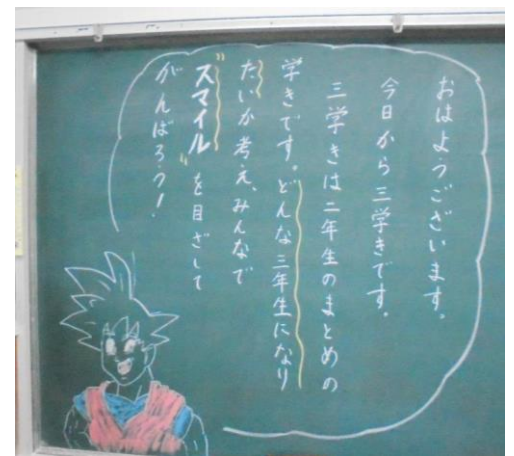 おはようございます。
今日から三学きです。
三学きは二年生のまとめの
学きです。どんな三年生になり
たいか考え、みんなで
"スマイル"を目ざして
がんばろう!